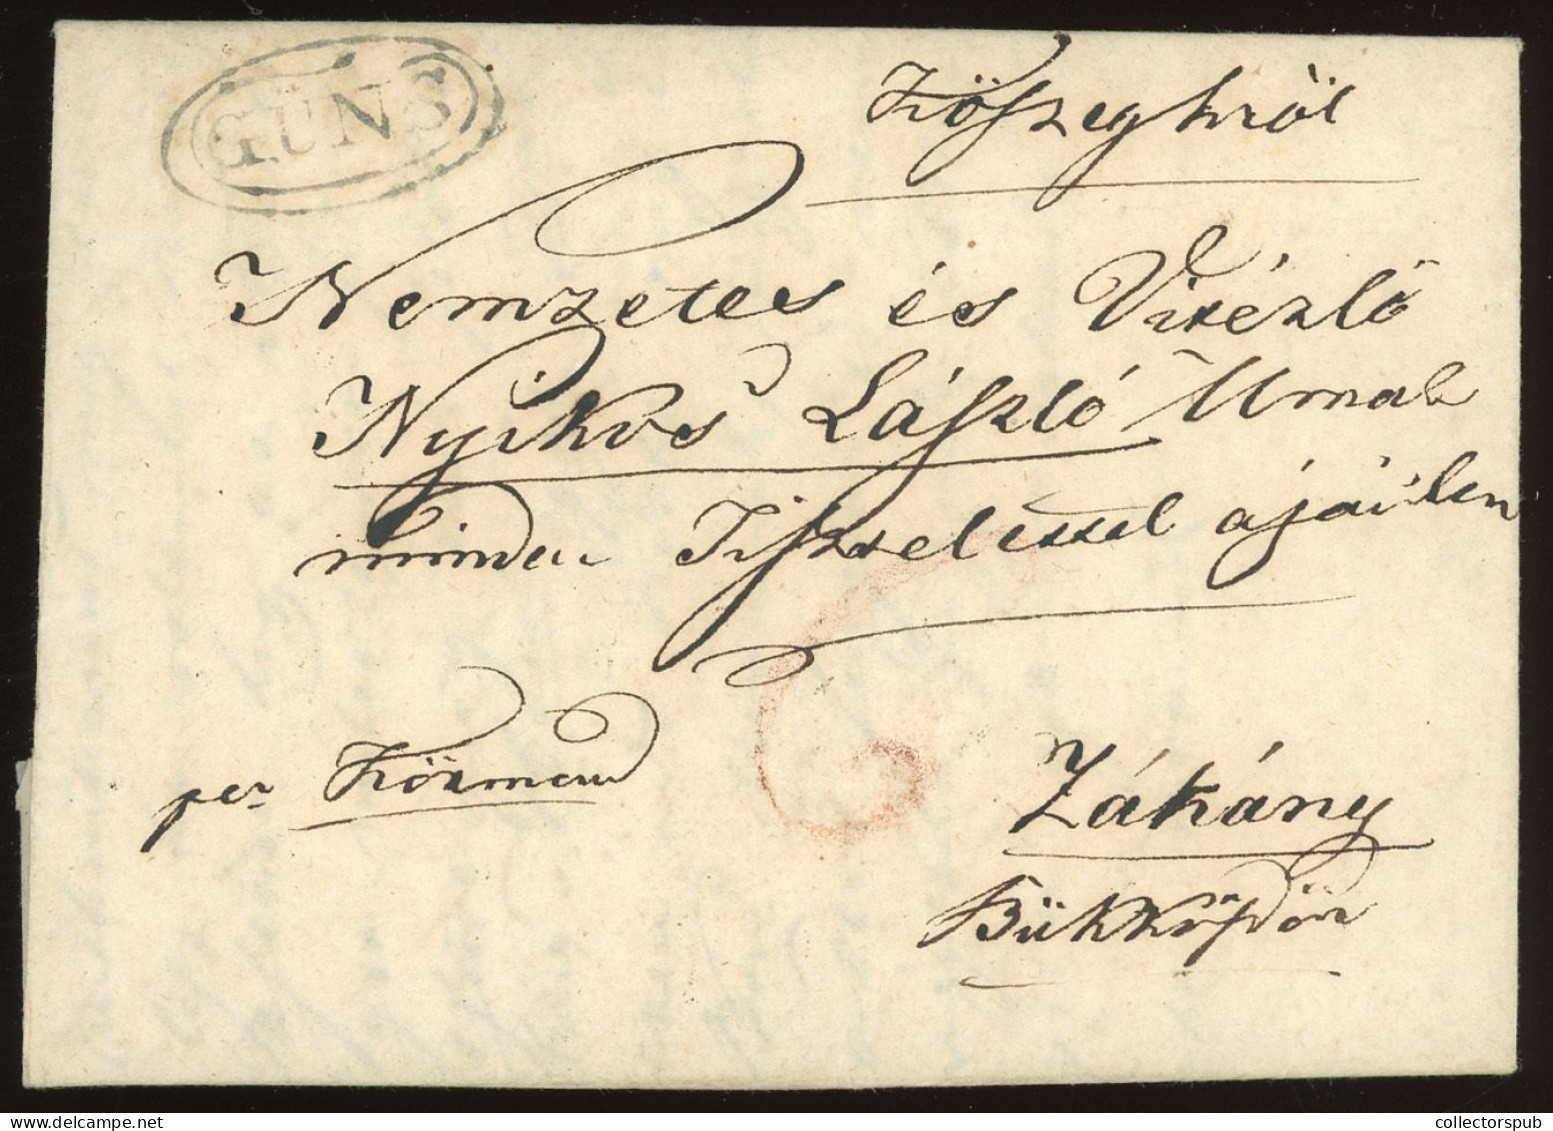 GÜNS
Kőszeghről
Nemzetes és Vitézlő
Nyikos László Urnak
minden Tisztelettel ajánlva
per Körmend
Zákány
Bükkösdön
collectorspub